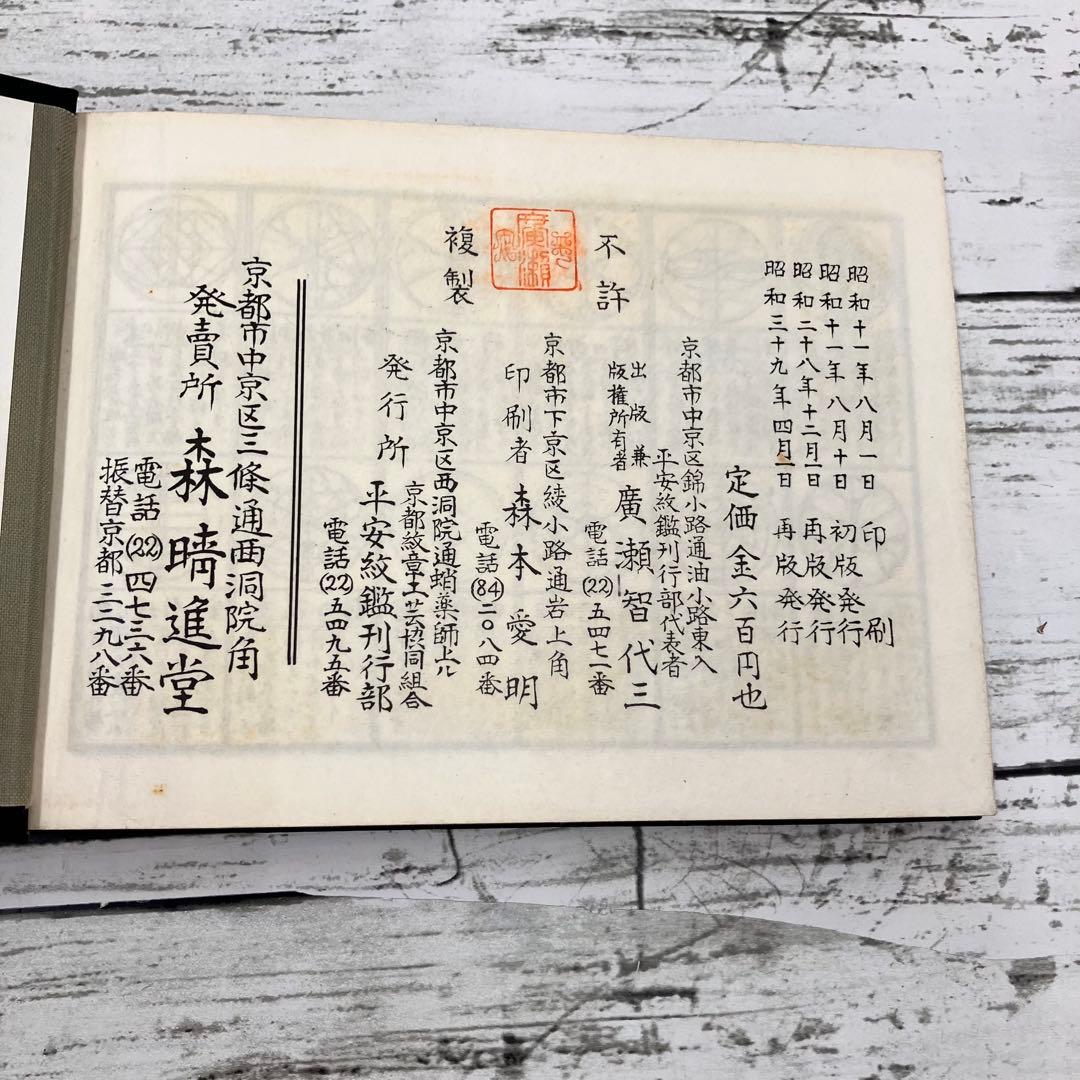 昭和十一年八月一日 印刷
昭和十一年八月十日 初版発行
昭和二十八年十二月一日 再版発行
昭和三十九年四月一日 再版発行
定価金六百円也
不許
複製
京都市中京区錦小路通油小路東入
平安紋鑑刊行部代表者
出版兼
版権所有者
廣瀬智代三
電話(22)五四七一番
京都市下京区綾小路通岩上角
印刷者 森本愛明
電話(84)二〇八四番
京都市中京区西洞院通蛸薬師上ル
発行所
京都紋章工芸協同組合
平安紋鑑刊行部
電話(22)五四九五番
京都市中京区三條通西洞院角
発賣所 森晴進堂
電話(22)四七三六番
振替京都三二九八番